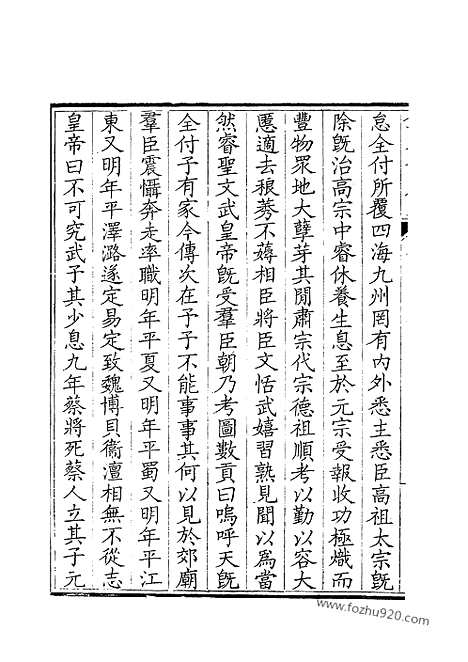 怠全付所覆四海九州罔有內外悉主悉臣高祖太宗既
除既治高宗中睿休養生息至於元宗受報收功極熾而
豐物眾地大孽芽其間肅宗代宗德祖順考以勤以容大
慝適去稂莠不薅相臣將臣文恬武嬉習熟見聞以為當
然睿聖文武皇帝既受羣臣朝乃考圖數貢曰嗚呼天既
全付予有家今傳次在予予不能事事其何以見於郊廟
羣臣震懾奔走率職明年平夏又明年平蜀又明年平江
東又明年平澤潞遂定易定致魏博貝衞澶相無不從志
皇帝曰不可究武予其少息九年蔡將死蔡人立其子元
www.fozhu920.com